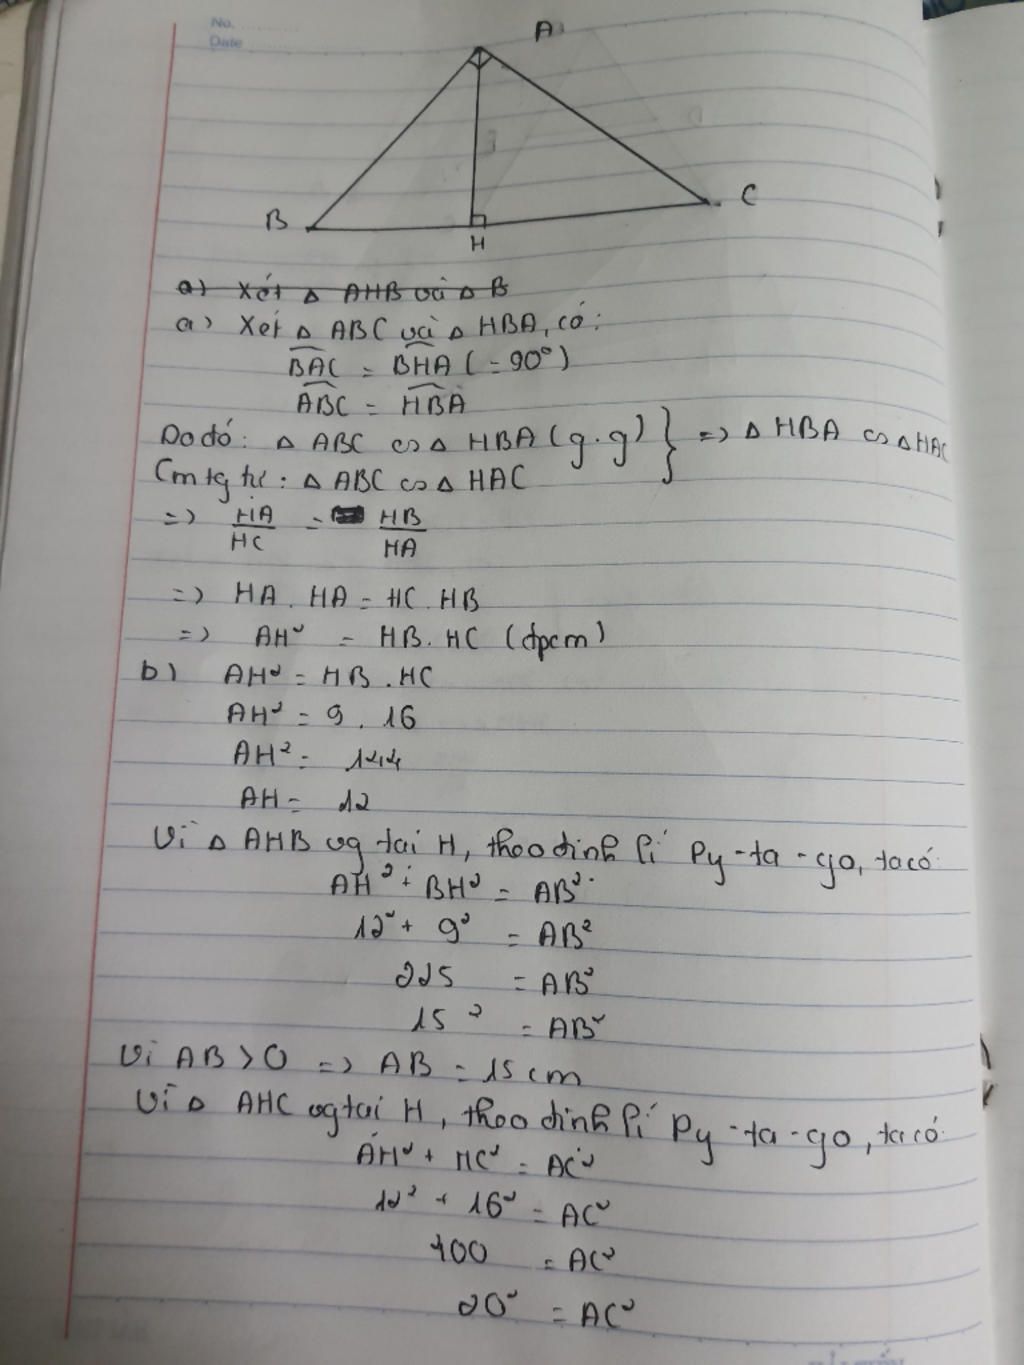 No.
Date
A
B
H
C
a) Xét △ AHB và △ B
a) Xét △ ABC và △ HBA, có:
BAC = BHA (= 90°)
ABC = HBA
Do đó: △ ABC ∽ △ HBA (g.g) } => △ HBA ∽ △ HAC
Cm tg tự: △ ABC ∽ △ HAC
=> HA/HC = HB/HA
=> HA . HA = HC . HB
=> AH² = HB . HC (đpcm)
b) AH² = HB . HC
AH² = 9 . 16
AH² = 144
AH = 12
Vì △ AHB vg tại H, theo định lí Py-ta-go, ta có:
AH² + BH² = AB²
12² + 9² = AB²
225 = AB²
15² = AB²
Vì AB > 0 => AB = 15 cm
Vì △ AHC vg tại H, theo định lí Py-ta-go, ta có:
AH² + HC² = AC²
12² + 16² = AC²
400 = AC²
20² = AC²